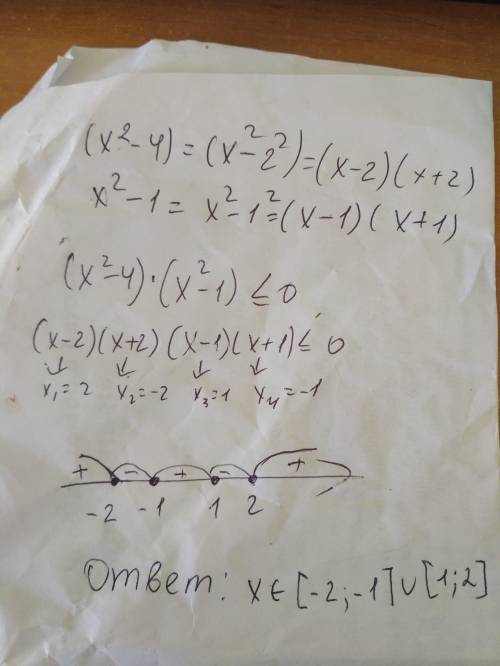 (x²-4) = (x²-2²) = (x-2)(x+2)
x²-1 = x²-1² = (x-1)(x+1)
(x²-4)·(x²-1) ≤ 0
(x-2)(x+2)(x-1)(x+1) ≤ 0
↓ ↓ ↓ ↓
x₁=2 x₂=-2 x₃=1 x₄=-1
+ - + - +
-2 -1 1 2
Ответ: x ∈ [-2;-1] ∪ [1;2]